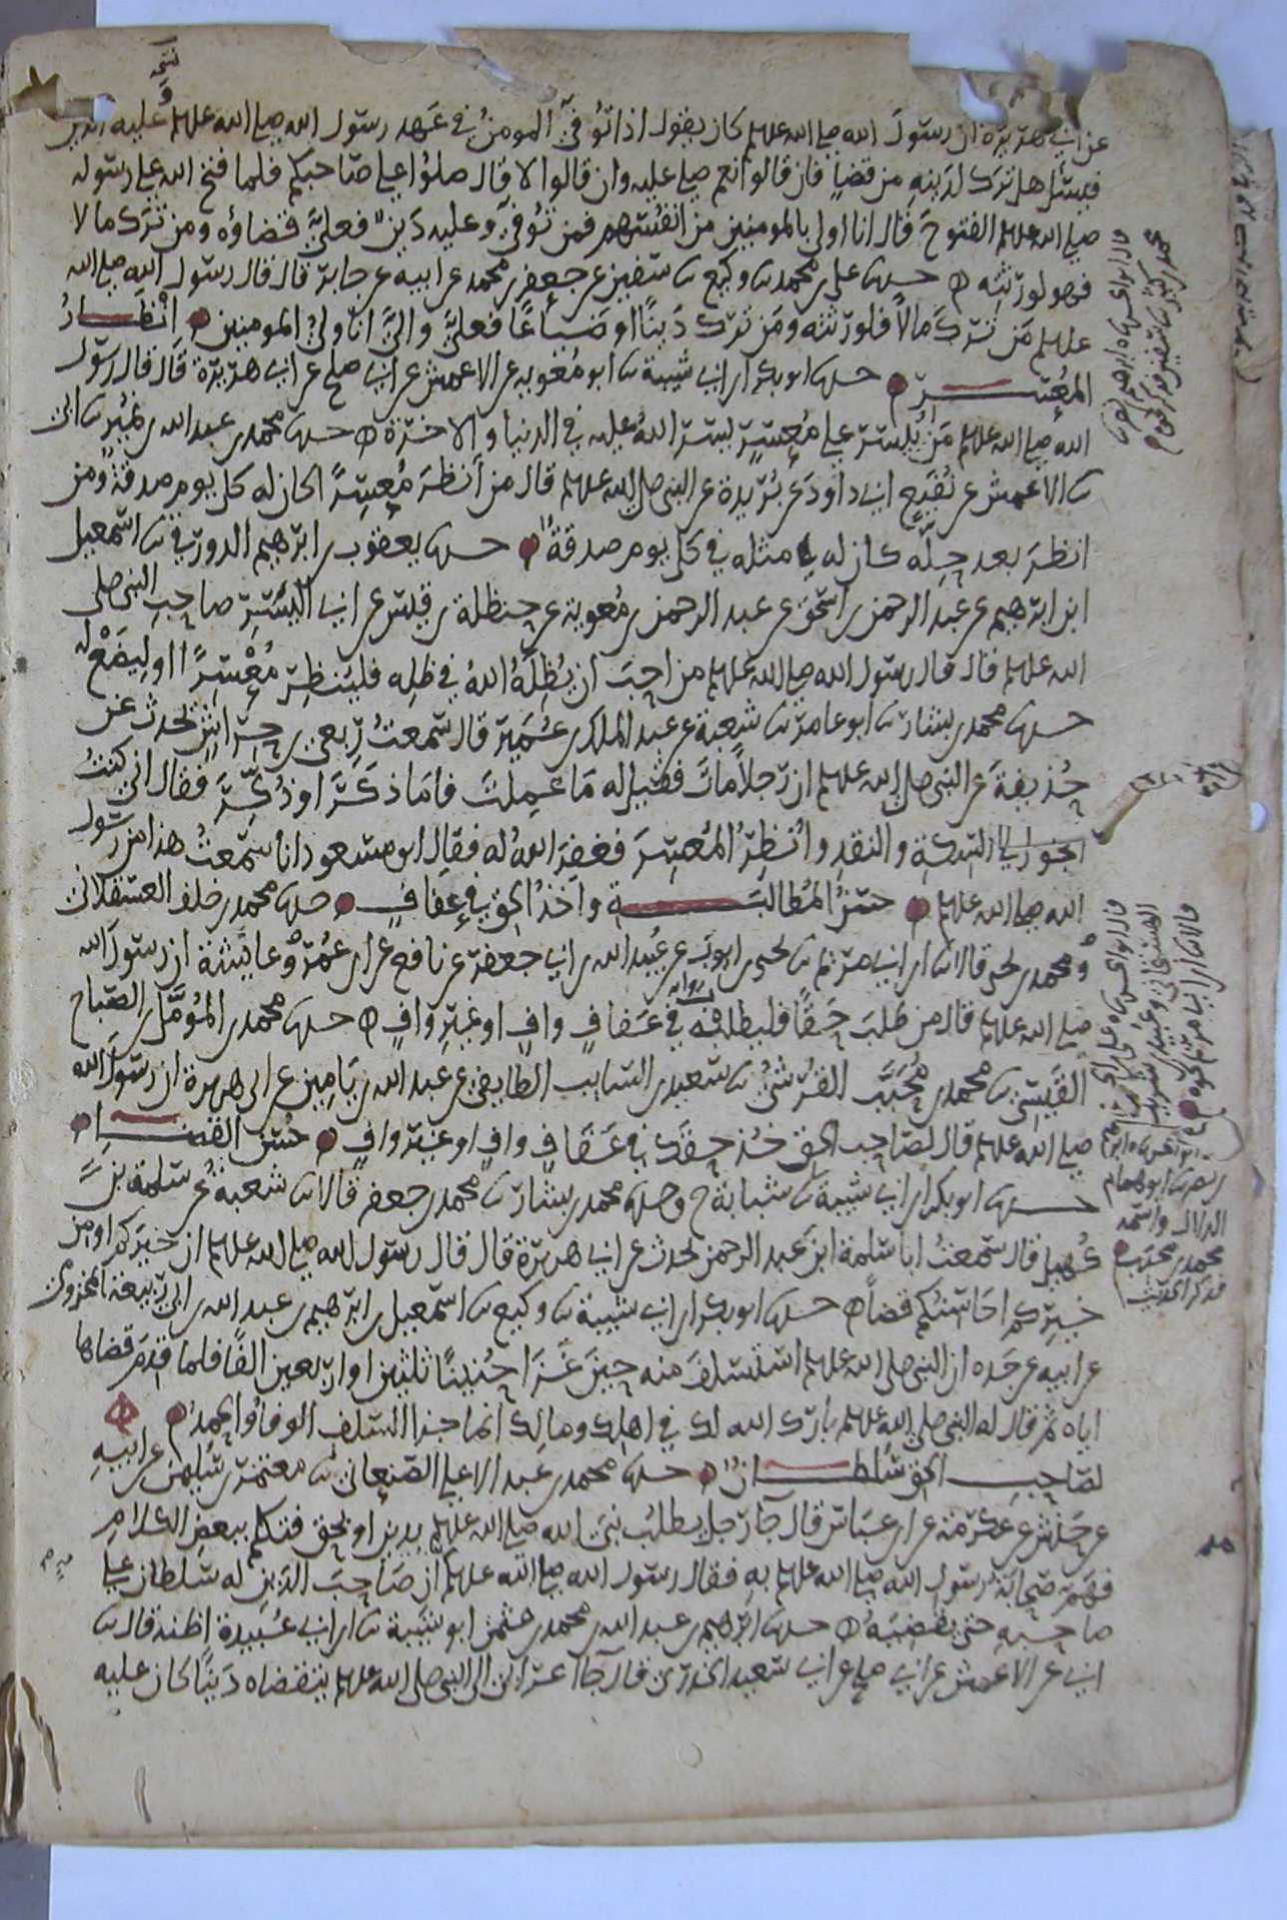 عن ابي هريرة ان رسول الله صلى الله عليه وسلم كان يقول اذا توفي المومن في عهد رسول الله صلى الله عليه وسلم وعليه الدين
فيسئل هل ترك لدينه من قضاء فان قالوا نعم صلى عليه وان قالوا لا قال صلوا على صاحبكم فلما فتح الله على رسوله
صلى الله عليه وسلم الفتوح قال انا اولى بالمومنين من انفسهم فمن توفي وعليه دين فعلي قضاؤه ومن ترك مالا
فهو لورثته حدثنا علي بن محمد ثنا وكيع ثنا سفين عن جعفر بن محمد عن ابيه عن جابر قال قال رسول الله صلى الله
عليه وسلم من ترك مالا فلورثته ومن ترك دينا او ضياعا فعلي والي انا ولي المومنين انظار
المعسر حدثنا ابو بكر ابن ابي شيبة ثنا ابو معوية عن الاعمش عن ابي صلح عن ابي هريرة قال قال رسول
الله صلى الله عليه وسلم من يسر على معسر يسر الله عليه في الدنيا والاخرة حدثنا محمد بن عبد الله بن نمير ثنا ابي
ثنا الاعمش عن نفيع ابي داود عن بريدة عن النبي صلى الله عليه وسلم قال من انظر معسرا كان له كل يوم صدقة ومن
انظر بعد حله كان له مثله في كل يوم صدقة حدثنا يعقوب بن ابرهيم الدورقي ثنا اسمعيل
ابن ابرهيم عن عبد الرحمن بن اسحق عن عبد الرحمن بن معوية عن حنظلة بن قيس عن ابي اليسر صاحب النبي صلى
الله عليه وسلم قال قال رسول الله صلى الله عليه وسلم من احب ان يظله الله في ظله فلينظر معسرا او ليضع له
حدثنا محمد بن بشار ثنا ابو عامر ثنا شعبة عن عبد الملك بن عمير قال سمعت ربعي بن حراش يحدث عن
حذيفة عن النبي صلى الله عليه وسلم ان رجلا مات فقيل له ما عملت فاما ذكر او ذكر فقال اني كنت
اتجوز في السكة والنقد وانظر المعسر فغفر الله له فقال ابو مسعود انا سمعت هذا من رسول
الله صلى الله عليه وسلم حسن المطالبة واخذ الحق في عفاف حدثنا محمد بن خلف العسقلاني
ومحمد بن يحيى قالا ثنا ابن ابي مريم ثنا يحيى بن ايوب عن عبيد الله بن ابي جعفر عن نافع عن ابن عمر وعايشة ان رسول الله
صلى الله عليه وسلم قال من طلب حقا فليطلبه في عفاف واف او غير واف حدثنا محمد بن المومل بن الصباح
القيسي ثنا محمد بن محبب القرشي ثنا سعيد بن السايب الطايفي عن عبد الله بن يامين عن ابي هريرة ان رسول الله
صلى الله عليه وسلم قال لصاحب الحق خذ حقك في عفاف واف او غير واف حسن القضاء
حدثنا ابو بكر ابن ابي شيبة ثنا شبابة ح وحدثنا محمد بن بشار ثنا محمد بن جعفر قالا ثنا شعبة عن سلمة بن
كهيل قال سمعت ابا سلمة ابن عبد الرحمن يحدث عن ابي هريرة قال قال رسول الله صلى الله عليه وسلم ان خيركم او من
خيركم احاسنكم قضاء حدثنا ابو بكر ابن ابي شيبة ثنا وكيع ثنا اسمعيل بن ابرهيم بن عبد الله بن ابي ربيعة المخزومي
عن ابيه عن جده ان النبي صلى الله عليه وسلم استسلف منه حين غزا حنينا ثلثين او اربعين الفا فلما قدم قضاها
اياه ثم قال له النبي صلى الله عليه وسلم بارك الله لك في اهلك ومالك انما جزا السلف الوفا والحمد
لصاحب الحق سلطان حدثنا محمد بن عبد الاعلى الصنعاني ثنا معتمر بن سليمن عن ابيه
عن حنش عن عكرمة عن ابن عباس قال جا رجل يطلب نبي الله صلى الله عليه وسلم بدين او بحق فتكلم ببعض الكلام
فهم صحابة رسول الله صلى الله عليه وسلم به فقال رسول الله صلى الله عليه وسلم ان صاحب الدين له سلطان على
صاحبه حتى يقضيه حدثنا ابرهيم بن عبد الله بن محمد بن عثمن ابو شيبة ثنا ابن ابي عبيدة اظنه قال ثنا
ابي عن الاعمش عن ابي صلح عن ابي سعيد الخدري قال جا اعرابي الى النبي صلى الله عليه وسلم يتقضاه دينا كان عليه